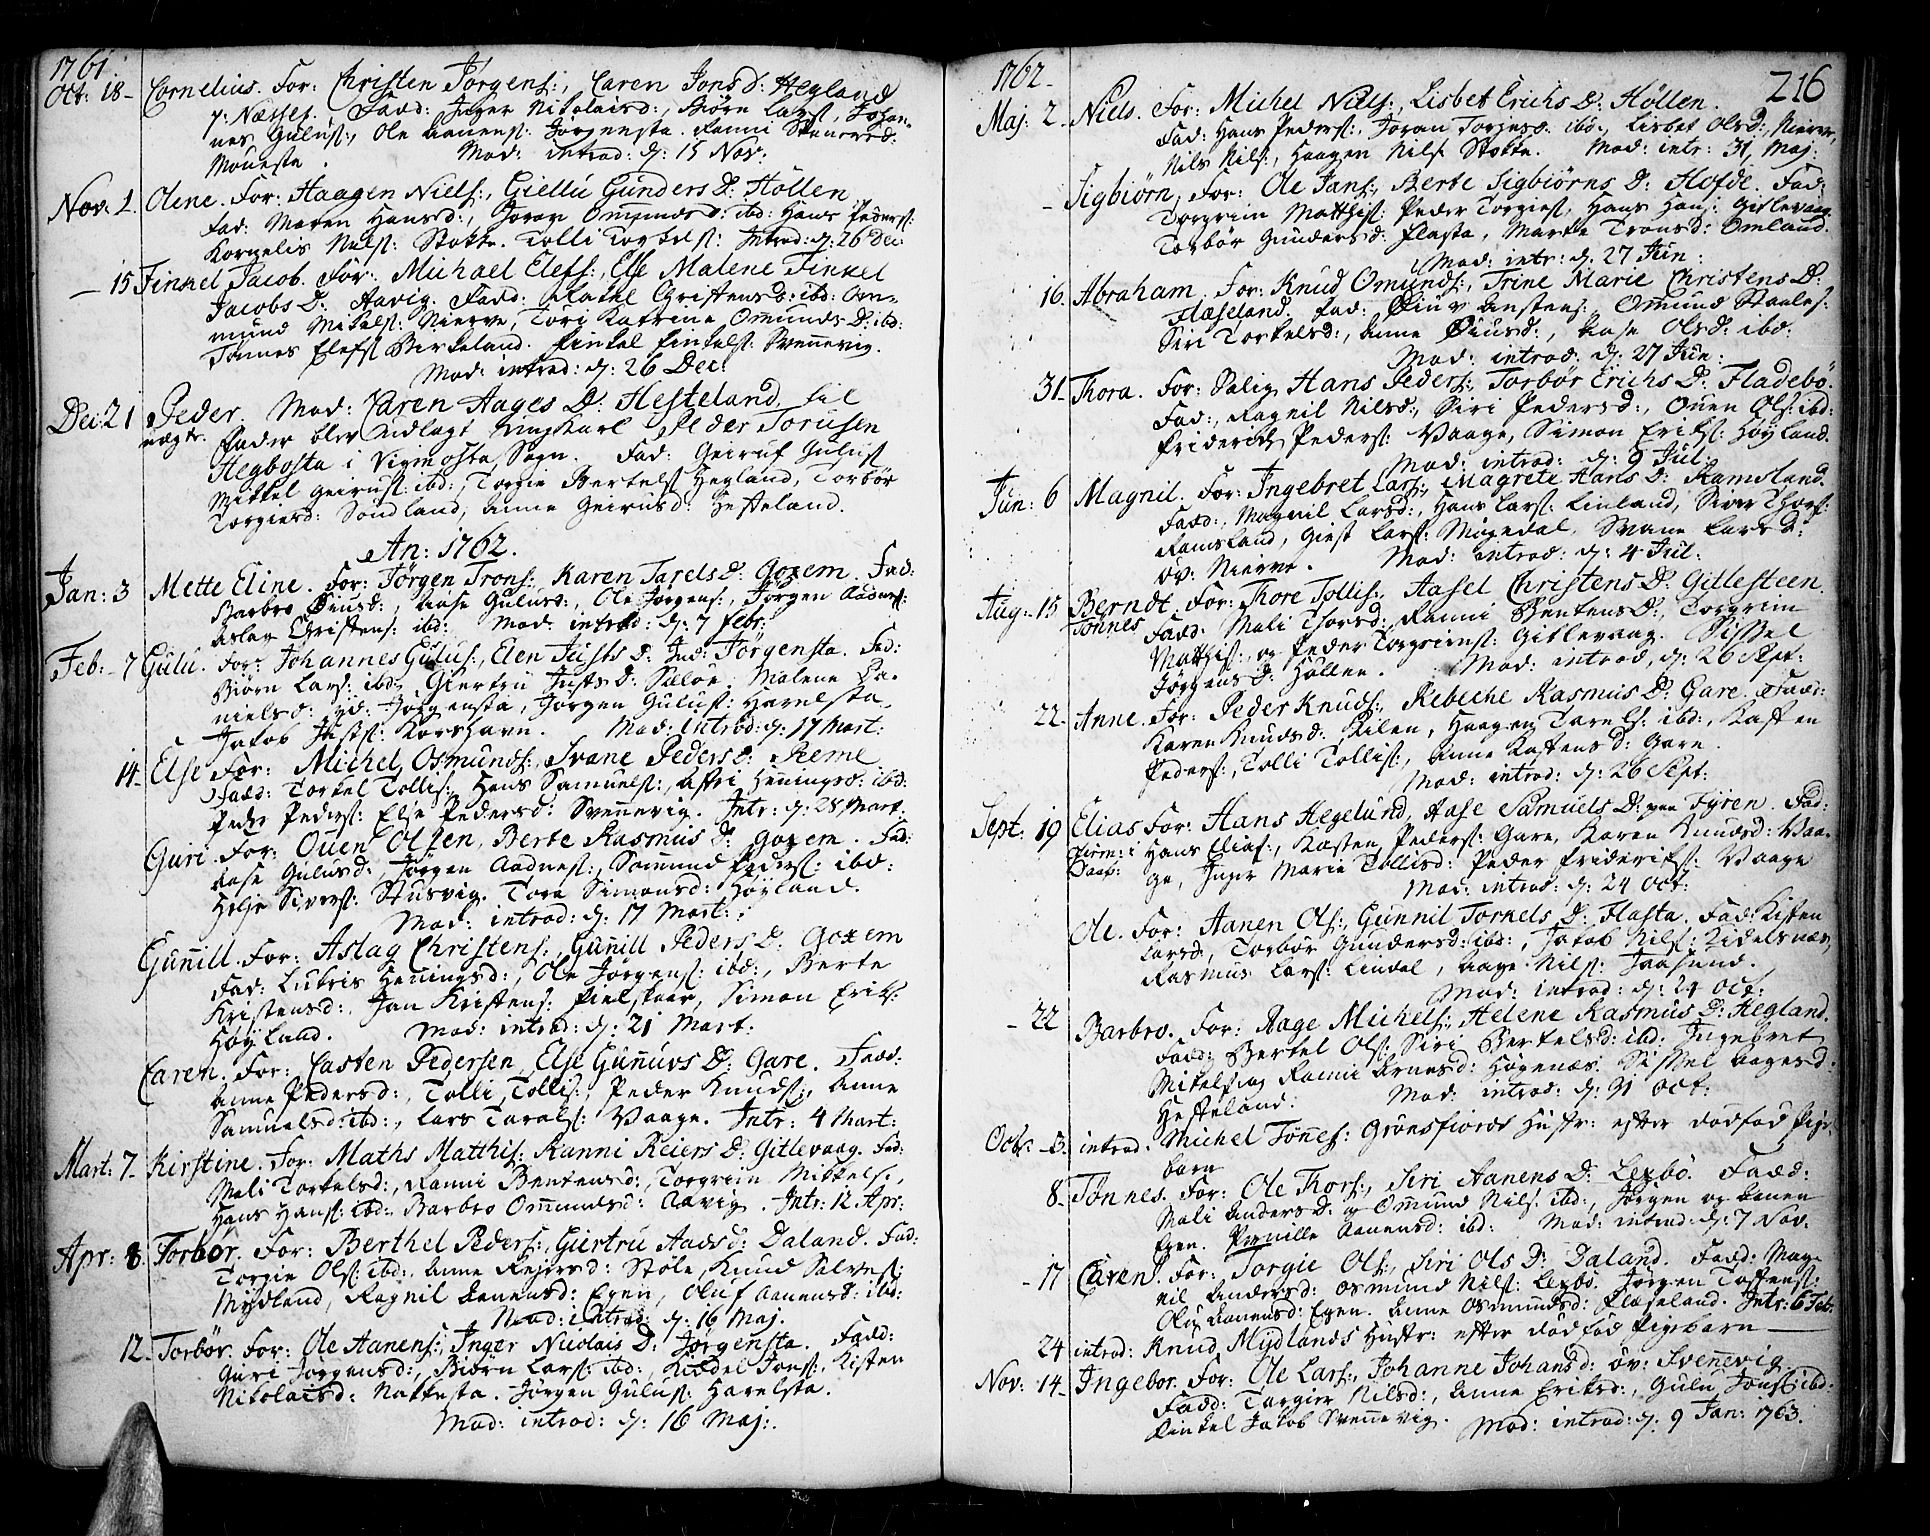 1761
Oct: 18 - Cornelius. For: Christen Jørgens:, Caren Jons D: Hegland
7: Næsset. Fadd: Inger Nikolaisd:, Biørn Lars:, Johan-
nes Gulus:, Ole Aanens: Jørgensta. Ranni
Mouesta. Mod: introd: d: 15 Nov:
Nov: 1. Olene. For: Haagen Niels:, Giellu Gunders D: Höllen
Fad: Maren Hansd:, Joran Ommunds d: ibd: Hans Peders:
Kornelis Nils: Stokke. Tolli Torkels: Introd: d: 26 Dec:
- 15 Finkel Jacob. For: Michael Elefs:, Else Malene Finkel
Jacobs D: Aavig. Fadd: Rakel Christensd: ibd: Om-
mund Mikels: Nierve, Tori Katrine Ommunds D: ibd:
Tønnes Elefs: Birkeland. Finkel Finkels: Svennevig.
Mod: introd: d: 26 Dec:
Dec: 21 Peder. Mod: Caren Aages D: Hesteland til
uægte. Fader blev udlagt ungkarl Peder Torusen
Hegbosta i Vigmosta Sogn. Fad: Geiruf Gulus:
Mikkel Geirus: ibd:, Torgie Bertels: Hegland, Torbør
Torgiesd: Søndland, Anne Geirusd: Hesteland.
An: 1762.
Jan: 3 Mette Eline. For: Jørgen Trons:, Karen Tarels D: Goxem. Fad:
Barbro Øiusd:, Aase Gulusd:, Ole Jørgens:, Jørgen Aadnes:
Aslag Christens: ibd: Mod: introd: d: 7 Febr:
Feb: - 7 Gulu. For: Johannes Gulus:, Elen Justs D: Ind: Jørgensta. Fad:
Biørn Lars: ibd: Giertru Justs D: Sæløe, Malene Da-
nielsd: yd: Jørgensta, Jørgen Gulus: Harelsta,
Jakob Justs: Korshavn. Mod: introd: d: 17 Mart:
14. Else For: Michel Osmunds:, Svane Peders D: Reme
Fadd: Torkel Tollis:, Hans Samuels:, Astri Henningsd: ibd:
Peder Peders: Else Pedersd: Svennevig. Intr: d: 28 Mart.
Guri. For: Ouen Olsen, Berte Rasmus D: Goxem. Fad:
Aase Gulusd:, Jørgen Aadnes:, Sommund Peders: ibd:
Helje Sivers: Stusvig. Tore Simonsd: Høyland.
Mod: introd: d: 17 Mart:
Gunill. For: Aslag Christens:, Gunill Peders D: Goxem
Fad: Lukris Henningsd:, Ole Jørgens: ibd:, Berte
Kristensd:, Jan Kristens: Pielskaar, Simon Eriks:
Høyland. Mod: introd: d: 21 Mart:
Caren. For: Casten Pedersen, Else Gunuvs D: Gare. Fadd:
Anne Pedersd:, Tolli Tollis:, Peder Knuds:, Anne
Samuelsd: ibd:, Lars Tarals: Vaage. Intr: 4 Mart:
Mart: 7. Kirstine. For: Maths Matthis:, Ranni Reiers D: Gitlevaag. Fad:
Mali Torkelsd:, Ranni Bentensd:, Torgrim Mikkels:,
Hans Hans: ibd: Barbro Ommundsd: Aavig. Intr: 12 Apr:
Apr: 8. Torbor. For: Berthel Peders:, Giertru Aads D: Daland. Fad:
Torgie Ols: ibd:, Anne Reiersd: Støle, Knud Salves:
Mydland, Ragnil Aanensd: Egen, Oluf Aanensd: ibd:
Mod: introd: d: 16 Maj.
12. Torbør. For: Ole Aanens:, Inger Nicolais D: Jørgensta. Fadd:
Guri Jørgensd:, Biörn Lars: ibd:, Kiedel Jons:, Kisten
Nikolaisd: Nakkesta. Jørgen Gulus: Harelsta.
Mod: introd: d: 16 Maj:
1762 - 216
Maj: 2. Niels. For: Michel Niels:, Lisbet Erichs D: Höllen.
Fad: Hans Peders:, Joran Torjesd: ibd:, Lisbet Olsd: Nierve,
Nils Nils:, Haagen Nils: Stokke. Mod: intr: 31 Maj:
- Sigbiørn. For: Ole Jans:, Berte Sigbiørns D: Hofde. Fad:
Torgrim Matthis: Peder Torgies:, Hans Hans: Gitlevaag
Torbør Gundersd: Flasta, Marte Tronsd: Omland.
Mod: intr: d: 27 Jun:
16. Abraham. For: Knud Omunds:, Trine Marie Christens D:
Flæseland. Fad: Øiuv Anstens:, Ommund Staales:
Siri Torkelsd:, Anne Øiusd:, Aase Olsd: ibd:
Mod: introd: d: 27 Jun:
31. Thora. For: Salig Hans Peders:, Torbör Erichs D: Fladebö.
Fad: Ragnil Nilsd:, Siri Pedersd:, Ouen Ols: ibd:
Friderich Peders: Vaage, Simon Eriks: Høyland.
Mod: introd: d: 9 Jul:
Jun: 6 Magnil. For: Ingebret Lars:, Magrete Hans D: Ramsland.
Fadd: Magnil Larsd:, Hans Lars: Linland, Siver Thors:
Ramsland, Giest Lars: Migedal, Svane Larsd:
Ov: Nierve. Mod: introd: d: 4 Jul:
Aug: 15 Berndt Tönnes. For: Thore Tollis:, Aasel Christens D: Gitlesteen.
Fadd: Mali Thorsd: Ranni Bentens D:, Torgrim
Matthis:, og Peder Torgrims: Gitlevaag. Sissel
Jörgens D: Höllen. Mod: introd: d: 26 Sept:
22. Anne. For: Peder Knuds:, Rebeche Rasmus D: Gare. Fadd:
Karen Knudsd: Rilen, Haagen Tarels: ibd:, Kasten
Peders:, Tolli Tollis:, Anne Kastensd: Gare.
Mod: introd: d: 26 Sept:
Sept: 19 Elias For: Hans Hegelund, Aase Samuels D: paa Fyren. Fad:
Hans Elias:, Kasten Peders: Gare, Karen Knudsd: Vaa-
ge, Inger Marie Tollisd: Peder Frideriks: Vaage
Mod: introd: d: 24 Oct:
Ole. For: Aanen Ols:, Gunnil Torkels D: Flasta. Fad: Kisten
Larsd:, Torbør Gundersd: ibd:, Jakob Nils: Kidelsnæs,
Rasmus Lars: Lindal, Aage Nils: Jaasund.
Mod: introd: d: 24 Oct:
- 22 Barbro. For: Aage Michels:, Helene Rasmus D: Hegland.
Fadd: Bertel Ols: Siri Bertelsd: ibd: Ingebret
Mikels: og Ranni Arnesd: Høgenæs. Sissel Aagesd:
Hesteland. Mod: introd: d: 31 Oct:
Octb: - 3. introd: Michel Tönnes: Grønsfiords Hustr: efter dødfød Pige-
barn
8. Tønnes. For: Ole Thors:, Siri Aanens D: Lexbö. Fadd:
Mali Anders D: og Ommund Nils: ibd:, Jörgen og Aanen
Egen. Pernille Aanensd: ibd: Mod: introd: d: 7 Nov:
- 17 Caren. For: Torgie Ols:, Siri Ols D: Daland. Fadd: Mag-
nil Andersd: Osmund Nils: Lexbö. Jörgen Toffens:
Oluf Aanensd: Egen. Anne Osmundsd: Flæseland. Intr: 6 Feb:
24 introd: Knud Mydlands Hustr: efter dødfød Pigebarn
Nov: 14. Ingebor. For: Ole Lars:, Johanne Johans d: Öv: Svennevig.
Fadd: Targier Nilsd:, Anne Eriksd:, Gulu Jons: ibd:
Finkel Jakob Svennevig. Mod: introd: d: 9 Jan: 1763.